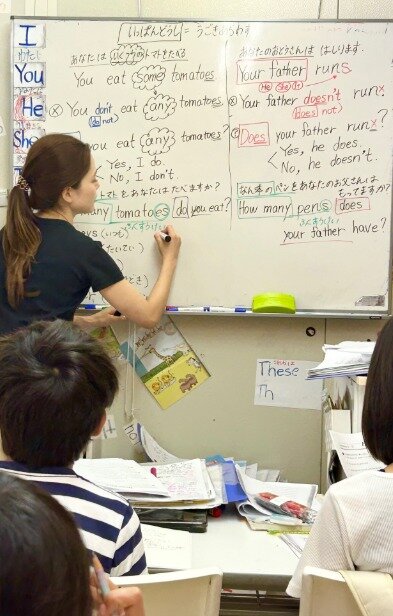 I
You
He
She
いっぱんどうし = うごきをあらわす
あなたは いくつかのトマトをたべる
You eat some tomatoes.
You don't eat any tomatoes.
(do not)
you eat any tomatoes?
Yes, I do.
No, I don't.
トマトをあなたはたべますか?
many tomatoes do you eat?
ふくすうけい
(いつも)
あなたのおとうさんは はしります。
Your father runs
He She It
Your father doesn't run
(does not)
Does your father run?
Yes, he does.
No, he doesn't.
なん本のペンをあなたのお父さんは
もってますか?
How many pens does
ふくすうけい
your father have?
These
Th